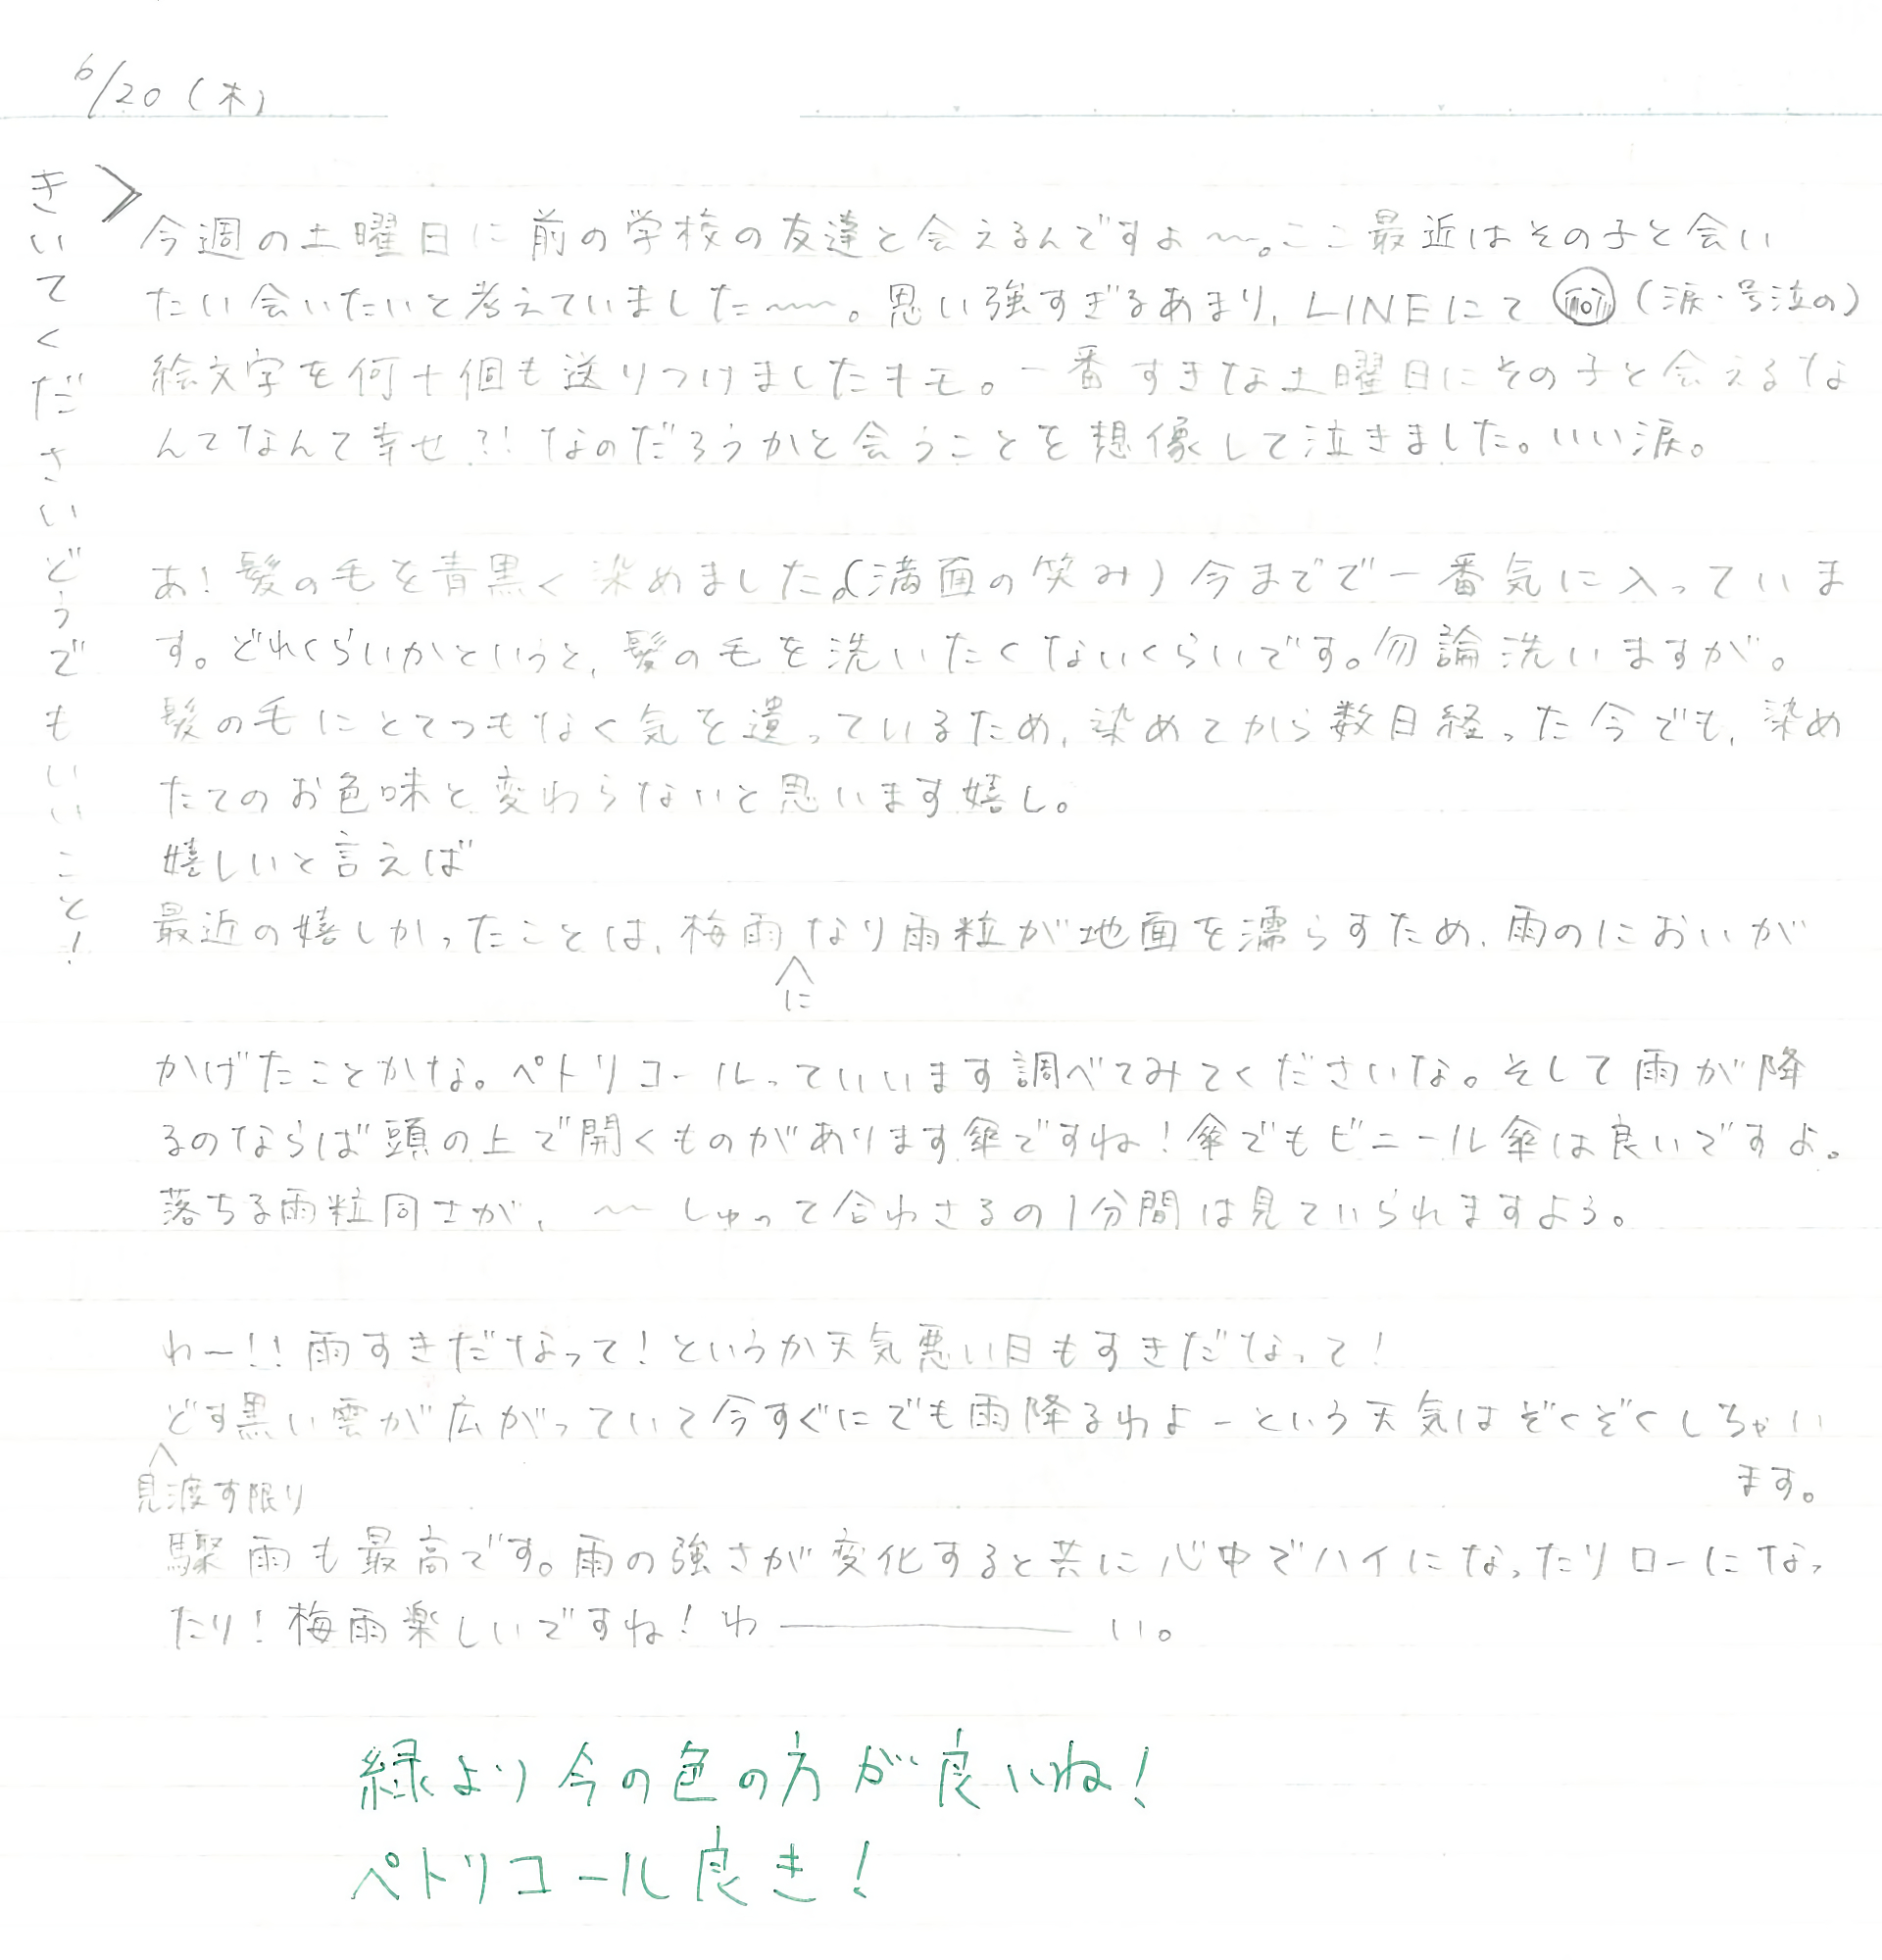 6/20(木)
きいてくださいどうでもいいこと!
今週の土曜日に前の学校の友達と会えるんですよ〜。ここ最近はその子と会い
たい会いたいと考えていました〜〜。思い強すぎるあまり、LINEにて(涙・号泣の)
絵文字を何十個も送りつけましたキモ。一番すきな土曜日にその子と会えるな
んてなんて幸せ?!なのだろうかと会うことを想像して泣きました。いい涙。
あ!髪の毛を青黒く染めました。(満面の笑み)今までで一番気に入っていま
す。どれくらいかというと、髪の毛を洗いたくないくらいです。勿論洗いますが。
髪の毛にとてつもなく気を遣っているため、染めてから数日経った今でも、染め
たてのお色味と変わらないと思います嬉し。
嬉しいと言えば
最近の嬉しかったことは、梅雨になり雨粒が地面を濡らすため、雨のにおいが
かげたことかな。ペトリコールっていいます調べてみてくださいな。そして雨が降
るのならば頭の上で開くものがあります傘ですね!傘でもビニール傘は良いですよ。
落ちる雨粒同士が、〜〜しゅって合わさるの1分間は見ていられますよう。
わー!!雨すきだなって!というか天気悪い日もすきだなって!
見渡す限りどす黒い雲が広がっていて今すぐにでも雨降るわよーという天気はぞくぞくしちゃい
ます。
驟雨も最高です。雨の強さが変化すると共に心中でハイになったりローになっ
たり!梅雨楽しいですね!わ―――い。
緑より今の色の方が良いね!
ペトリコール良き!